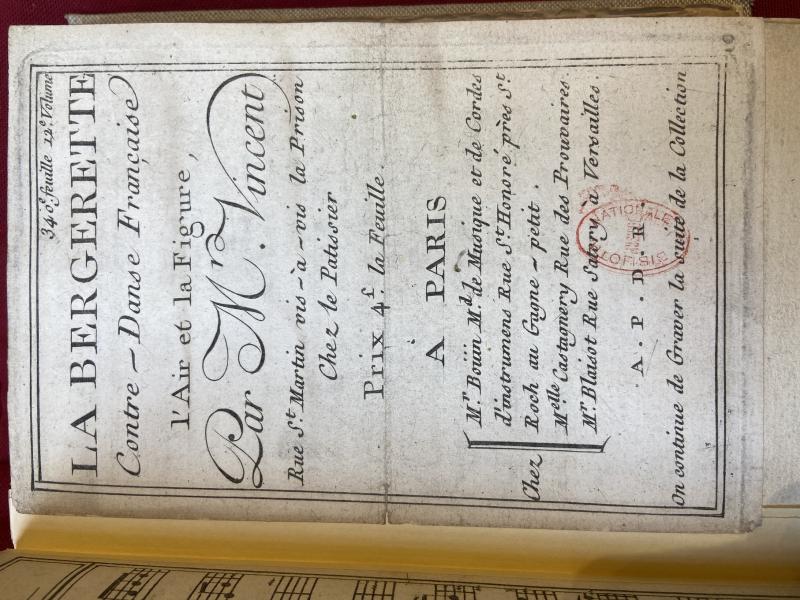 340.e feuille 12.e Volume
LA BERGERETTE
Contre - Danse Française
l'Air et la Figure,
Par M.r Vincent
Rue S.t Martin vis-à-vis la Prison
Chez le Patissier
Prix 4.f la Feuille.
A PARIS
M.r Boüin M.d de Musique et de Cordes
d'instrumens Rue S.t Honoré près S.t
Chez Roch au Gagne-petit.
M.elle Castagnery Rue des Prouvaires.
M.r Blaisot Rue Satory à Versailles.
A. P. D. R.
NATIONALE
On continue de Graver la suite de la Collection